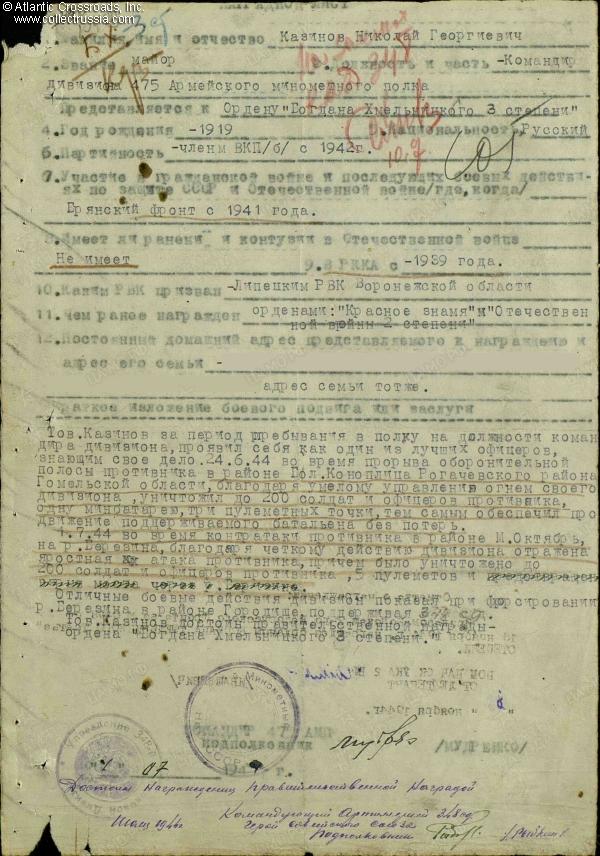 © Atlantic Crossroads, Inc.
www.collectrussia.com
НАГРАДНОЙ ЛИСТ
1. Фамилия имя и отчество Казинов Николай Георгиевич
2. Звание майор 3. Должность и часть -Командир
дивизиона 475 Армейского минометного полка
Представляется к Ордену "Богдана Хмельницкого 3 степени"
4. Год рождения -1919 5. Национальность Русский
6. Партийность -членм ВКП/б/ с 1942г.
7. Участие в гражданской войне и последующих боевых действи-
ях по защите СССР и Отечественной войне/где, когда/
Брянский фронт с 1941 года.
8. Имеет ли ранения и контузии в Отечественной войне
Не имеет 9. В РККА с -1939 года.
10. Каким РВК призван -Липецким РВК Воронежской области
11. Чем ранее награжден орденами: "Красное знамя" и "Отечествен
ной войны 2 степени".
12. Постоянный домашний адрес представляемого к награждению и
адрес его семьи -
адрес семьи тотже.
Краткое изложение боевого подвига или заслуги
Тов. Казинов за период пребывания в полку на должности коман
дира дивизиона, проявил себя как один из лучших офицеров,
знающим свое дело. 24.6.44 во время прорыва оборонительной
полосы противника в районе Коноплица Рогачевского района
Гомельской области, благодаря умелому управлению огнем своего
дивизиона, уничтожил до 200 солдат и офицеров противника,
одну минбатарею, три пулеметных точки, тем самым обеспечил про
движение поддерживаемого батальена без потерь.
1.7.44 во время контратаки противника в районе М. Октябрь,
на р. Березина, благодаря четкому действию дивизиона отражена
яростная атака противника, причем было уничтожено до
200 солдат и офицеров противника, 5 пулеметов и
Отличные боевые действия дивизион показал при форсировании
р. Березина в районе Городище, поддерживая
Тов. Казинов достоин правительственной награды-
ордена "Богдана Хмельницкого 3 степени".
КОМАНДИР 475 АМП
подполковник /МУДРЕНКО/
07 194 г.
Достоин Награждения Правительственной Наградой
Командующий Артиллерией
Герой Советского Союза
Подполковник